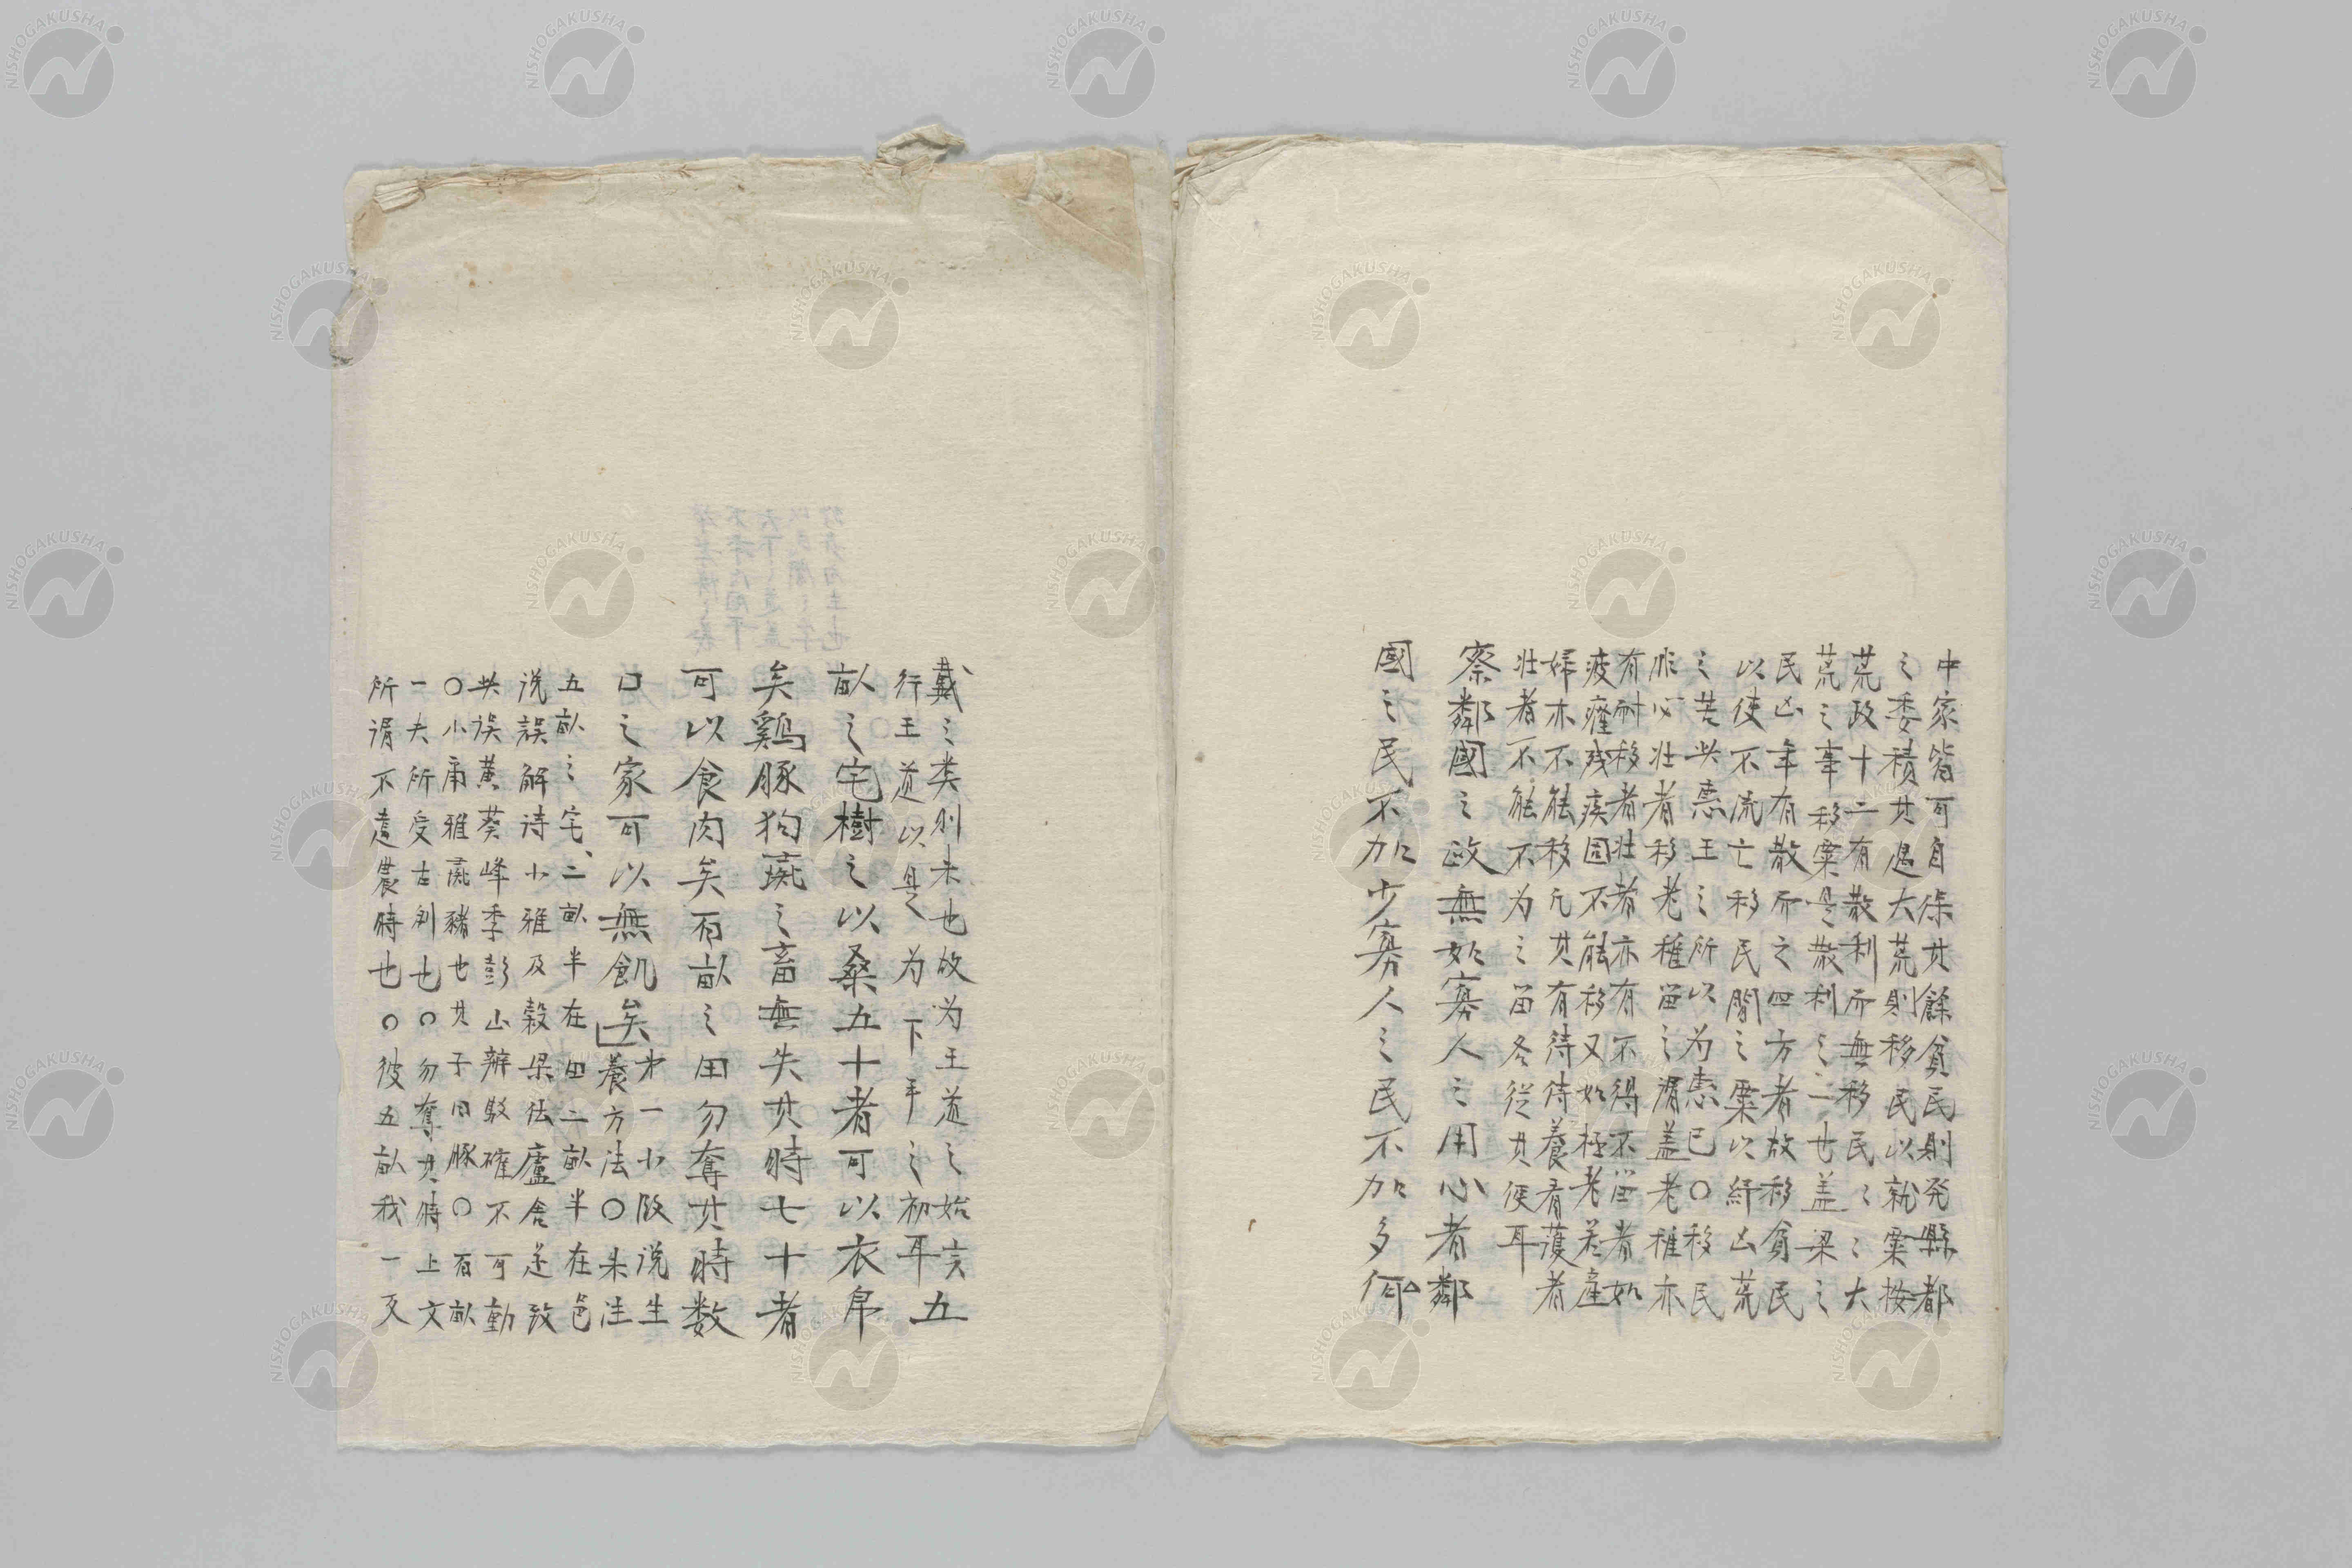 中家皆可自保其餘貧民則発縣都
之委積其遇大荒則移民以就粟按
荒政十二有散利而無移民〻〻大
荒之事移粟是散利之一也盖梁之
民凶年有散而之四方者故移貧民
以使不流亡移民間之粟以紓凶荒
之苦此惠王之所以为惠已〇移民
非必壮者移老稚留之謂盖老稚亦
有耐移者壮者亦有不得不留者如
疲癃残疾固不能移又如極老若產
婦亦不能移凡其有待待養看護者
壮者不能不为之留各從其便耳
察鄰國之政無如寡人之用心者鄰
國之民不加少寡人之民不加多何
戴之类則未也故为王道之始言
行王道以是为下手之初耳五
畝之宅樹之以桑五十者可以衣帛
矣鷄豚狗彘之畜無失其時七十者
可以食肉矣百畝之田勿奪其時数
口之家可以無飢矣
才一小段说生
養方法〇朱注
五畝之宅、二畝半在田二畝半在邑
说誤解诗小雅及穀梁伝廬舍遂致
此误黄葵峰季彭山辨駁確不可動
〇小甫雅彘豬也其子曰豚〇百畝
一夫所受古制也〇勿奪其時上文
所谓不違農時也〇彼五畝我一反
NISHOGAKUSHA